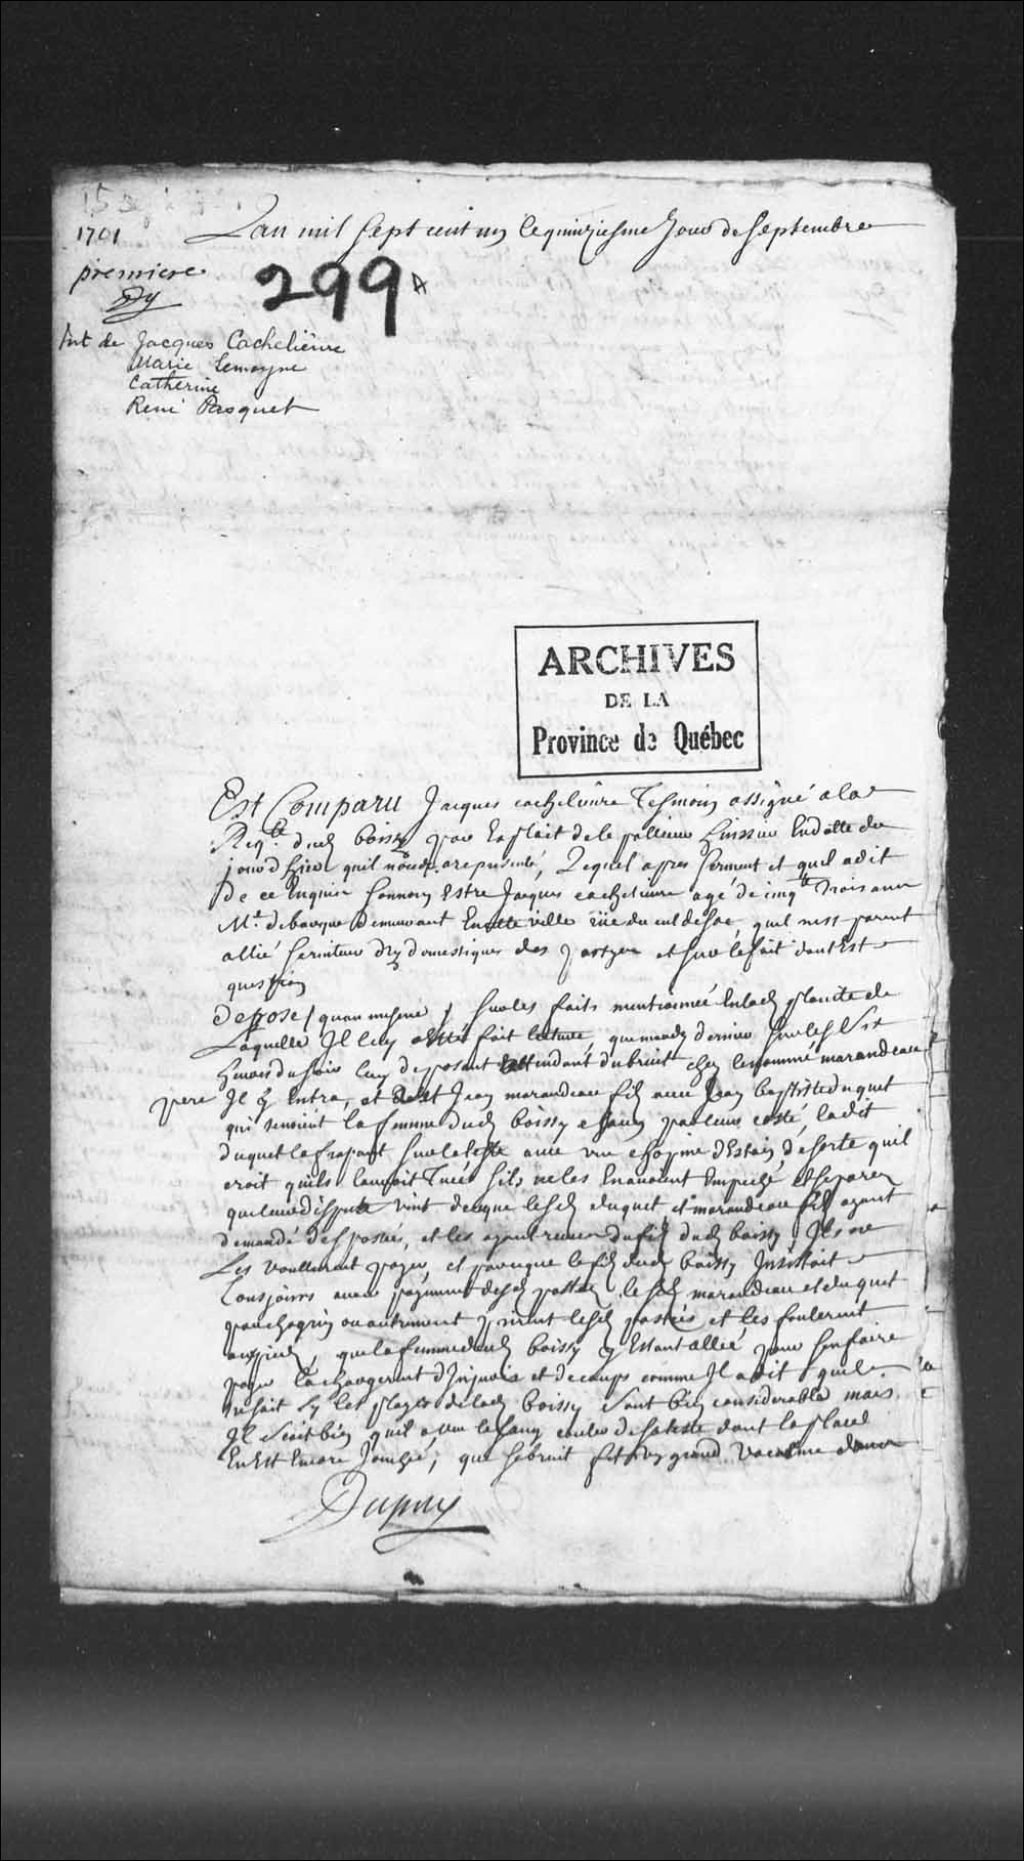 1701
Lan mil sept cent un le quinziesme Jour de septembre
premiere
299
Int de Jacques Cachelièvre
Marie Lemoyne
Catherine
René Pasquet
ARCHIVES
DE LA
Province de Québec
Est Comparu Jacques cachelievre Tesmoin assigné a la
Reqte dud boissy par Exploit de le pallieur huissier En datte du
jour d hier quil nous a representé, Lequel apres serment et quil a dit
de ce Enquis se nommer Estre Jacques cachelievre agé de cinqte trois ans
Me demeurant En cette ville rüe du cul de sac, quil nest parent
allié serviteur ny domestique des partyes et sur le fait dont Est
question
Depose sur les faits mentionnée En lad plainte de
Laquelle Il luy a esté fait lecture, que mardy dernier sur les six
heures du soir luy deposant Entendant du bruit chez le nommé marandeau
pere Il y Entra, et Jean marandeau fils avec Jean baptiste duquet
qui tenoient la femme dud boissy chacun par leur costé, ledit
duquet la frapant sur la teste avec une chopine d'Estain de sorte quil
croit quils lauroit Tuée sils ne les En avoient Empesché et separer
que leur dispute vint de ce que lesd duquet et marandeau fils ayant
demandé des pastés, et les ayant receus du fils dud boissy Ils ne
Les voullurent payer, et parce que le fils dud boissy Insistoit
Tousjours avoir payement desd pastés lesd marandeau et duquet
par chagrin ou autrement prirent lesd pastés et les foulerent
aux pieds, que la femme dud boissy y Estant allée pour sen faire
payer la chargerent d'Injures et de coups comme Il a dit quil
ne sait sy les playes de lad boissy sont bien considerable mais
Il scait bien quil a veu le sang couler de sa teste dont la place
En Est Encore Jonchée, que se bruit fit un grand vacarme dans
Dupuy